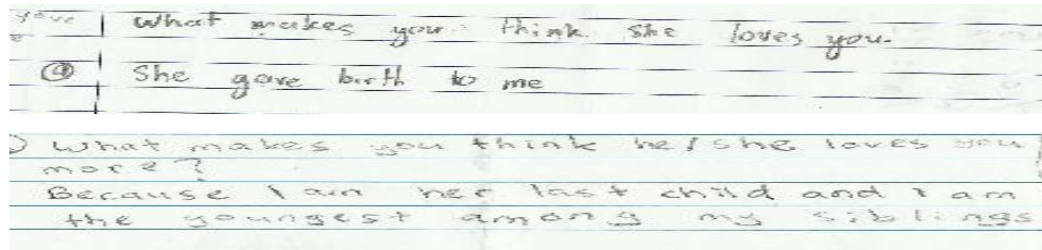 What makes you think she loves you.
④ She gave birth to me
What makes you think he/she loves you
more?
Because I am her last child and I am
the youngest among my siblings